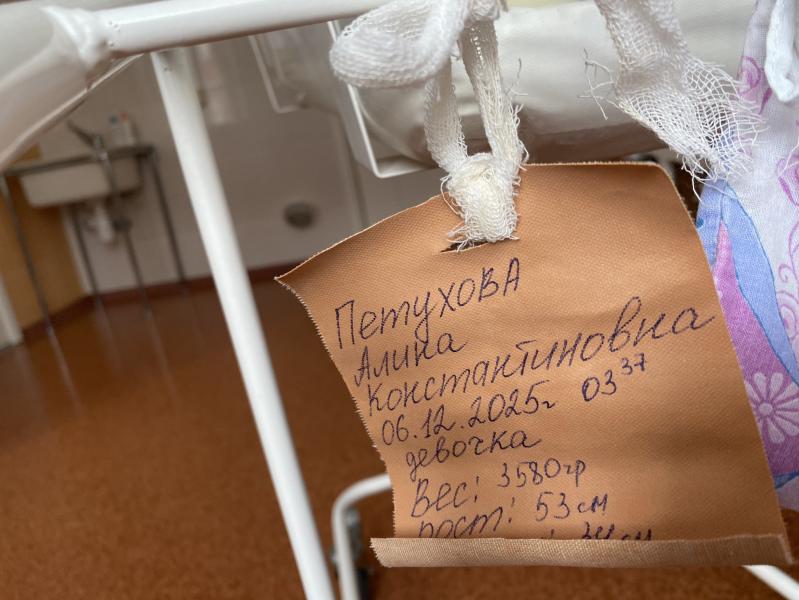 Петухова
Алина
Константиновна
06.12.2025г 03 37
девочка
Вес: 3580гр
рост: 53 см
34 см